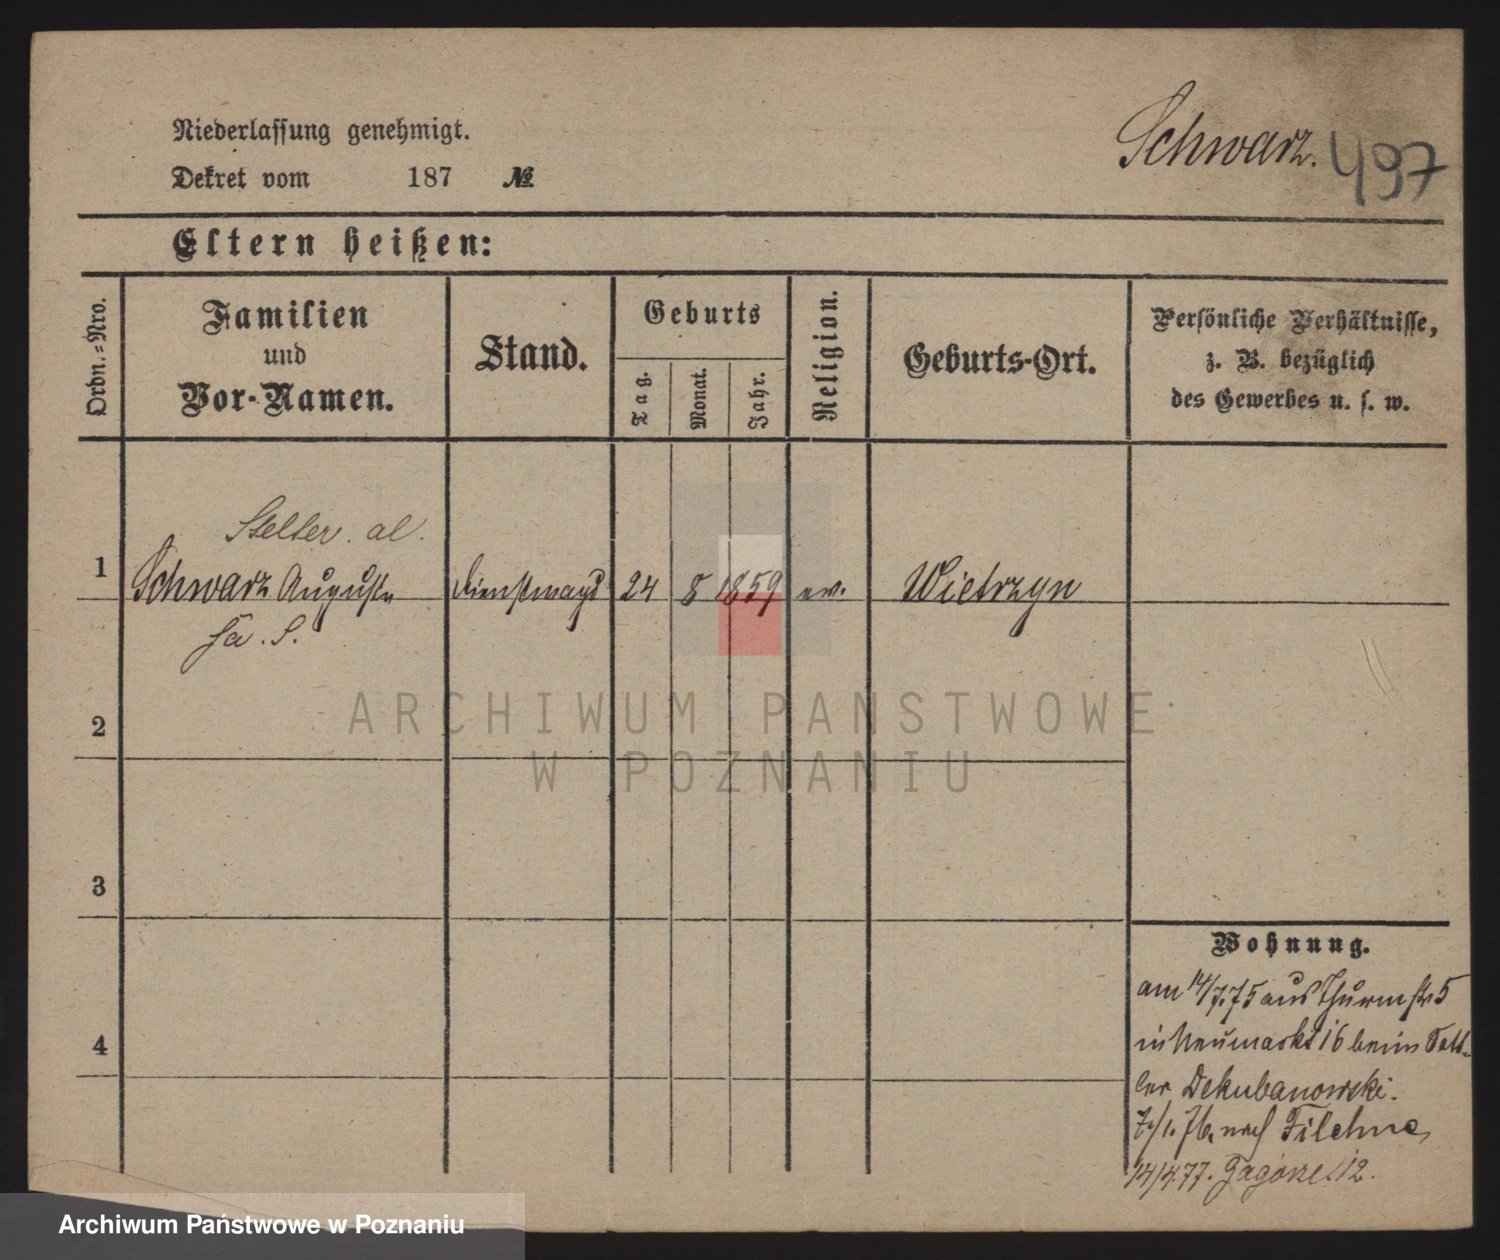 Niederlassung genehmigt.
Schwarz. 497
Dekret vom 187 №
Eltern heißen:
Ordn.=Nro.
Familien
und
Vor-Namen.
Stand.
Geburts
Tag.
Monat.
Jahr.
Religion.
Geburts-Ort.
Persönliche Verhältnisse,
z. B. bezüglich
des Gewerbes u. s. w.
Stelter. al.
1 Schwarz Auguste Dienstmagd 24 8 1859 ev. Wietrzyn
2
3
4
Wohnung.
am 14/7.75 aus Thurmstr 5
in Neumarkt 16 beim Satt-
ler Dekubanowski.
/1. 76. nach Filehne
14/4.77. Zagorze 12.
ARCHIWUM PAŃSTWOWE
W POZNANIU
Archiwum Państwowe w Poznaniu